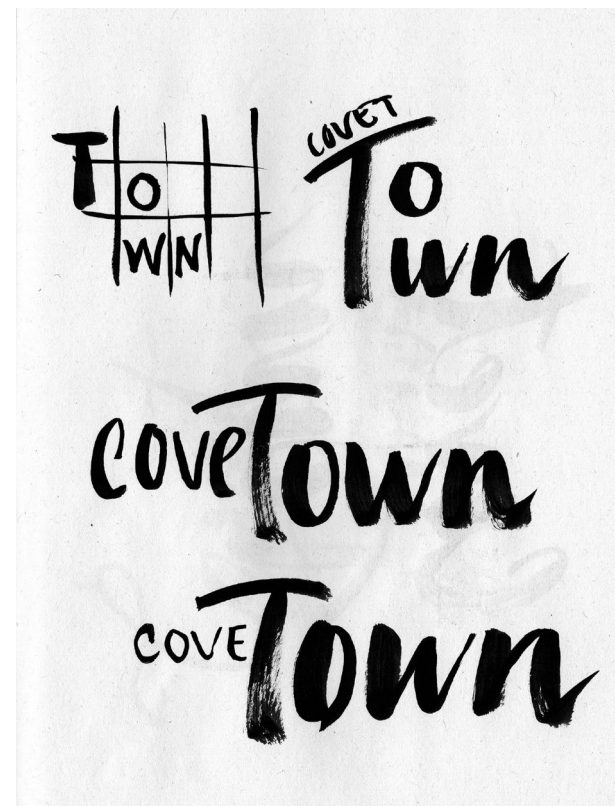 TO
WN
COVET
To
wn
coveTown
COVETown